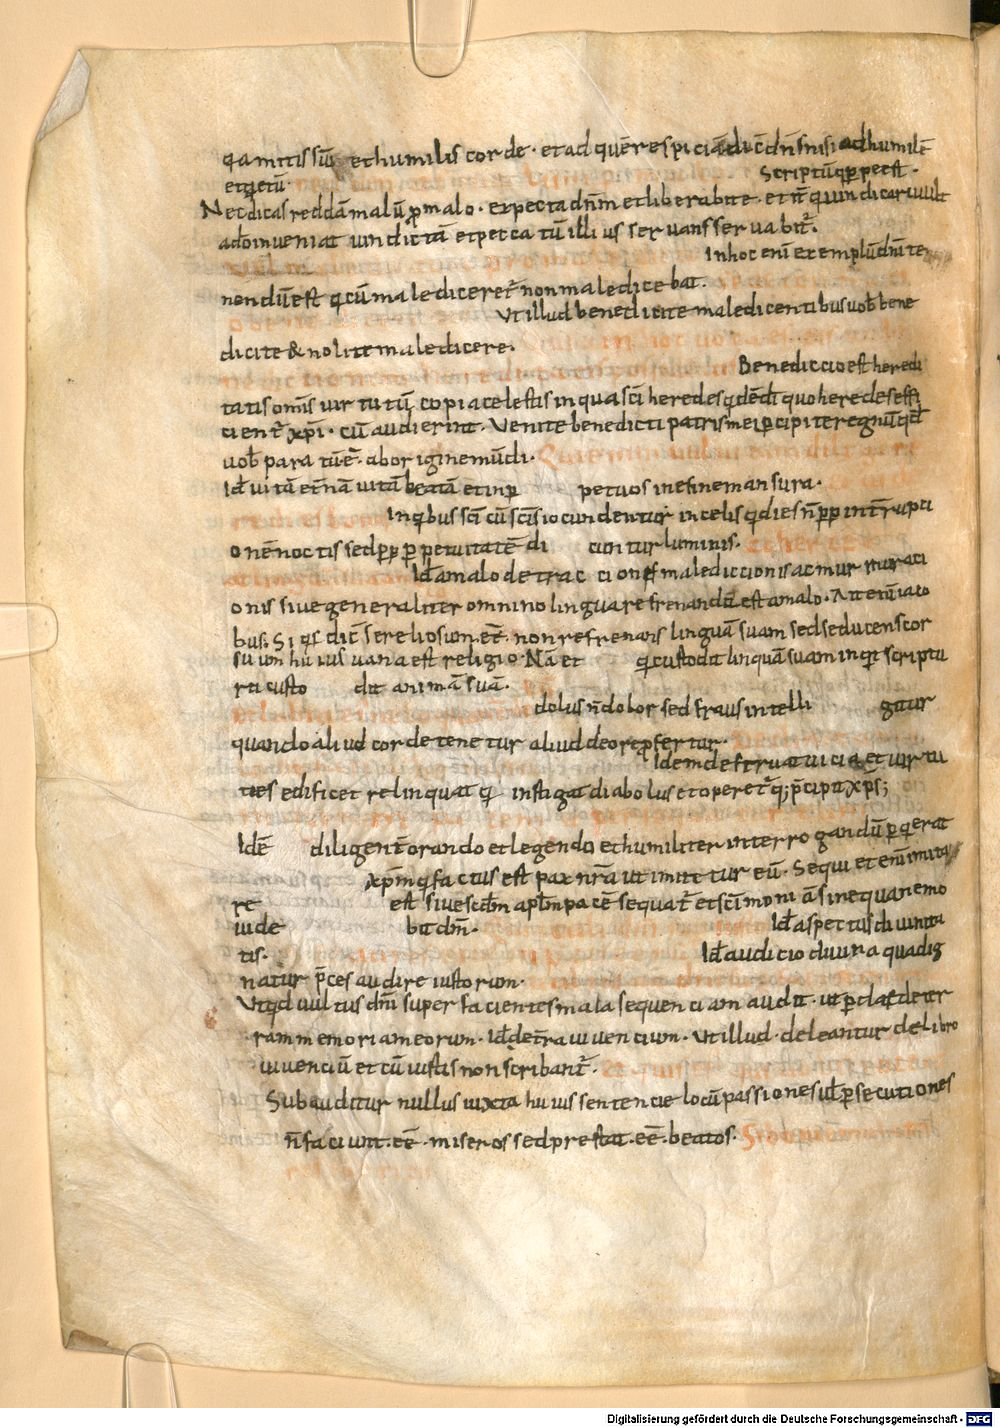 qa mitis sū et humilis corde · et ad quē respiciā ducē dn̄s nisi ad humilē
et quietū· Scriptū quippe est ·
Ne dicas reddā malū p malo · expecta dn̄m et liberabit te · et n̄ qui uindicari uult
a dō inueniat uindictā et peccatū illius seruans seruabit̄.
In hoc enī exemplū dn̄i te
nendū est q cū malediceret̄ non maledicebat.
Ut illud benedicite maledicentibus uob̄ bene
dicite & nolite maledicere.
Benediccio est heredi
tatis om̄is uirtutū copia celestis in qua sc̄i heredes
cient̄ xp̄i · cū audierint · Venite benedicti patris mei p cipite regnū qd̄
uob̄ paratū ē· ab origine mūdi·
Id̄ uitā et̄nā uitā beatā et in p petuo sine fine mansura·
In qbus sc̄i cū sc̄is iocundentur in celis q dies n̄
one noctis sed p p petuitatē di cuntur luminis·
Id̄ a malo detrac cionis malediccionis ac murmuraci
onis siue generaliter omnino lingua refrenanda est a malo ·
bus. Si qs dic̄ se reliosum eē · non refrenans linguā suam sed seducens cor
suum huius uana est religio · Nā et q custodit linquā suam in qt scriptu
ra custo dit animā suā·
dolus n̄ dolor sed fraus intelli gitur
quando aliud corde tenetur aliud de ore p fertur·
Idem destruat uicia et uirtu
tes edificet relinquat q instigat diabolus et operet̄ q; p̄cipit xp̄s;
Idē diligent̄ orando et legendo et humiliter interrogandū
xp̄m q factus est pax nr̄a ut imitetur eū· Sequi et enī imita
re est siue scdm apłm pacē sequat̄ et sc̄imoniā sine qua nemo
uide bit dm̄·
Id̄ aspectus diuinita
tis· Id̄ audicio diuina qua dig
natur p̄ces audire iustorum·
Ut qd uultus dn̄i super facientes mala sequenciam audit · ut p dat de ter
ram memoriam eorum · Id̄ de t̄ra uiuencium · Ut illud · deleantur de libro
uiuenciū et cū iustis non scribant̄·
Subauditur nullus iuxta huius sentencie locū passiones ut p secutiones
n̄ faciunt · eē · miseros sed prestat · eē · beatos·
Digitalisierung gefördert durch die Deutsche Forschungsgemeinschaft - DFG